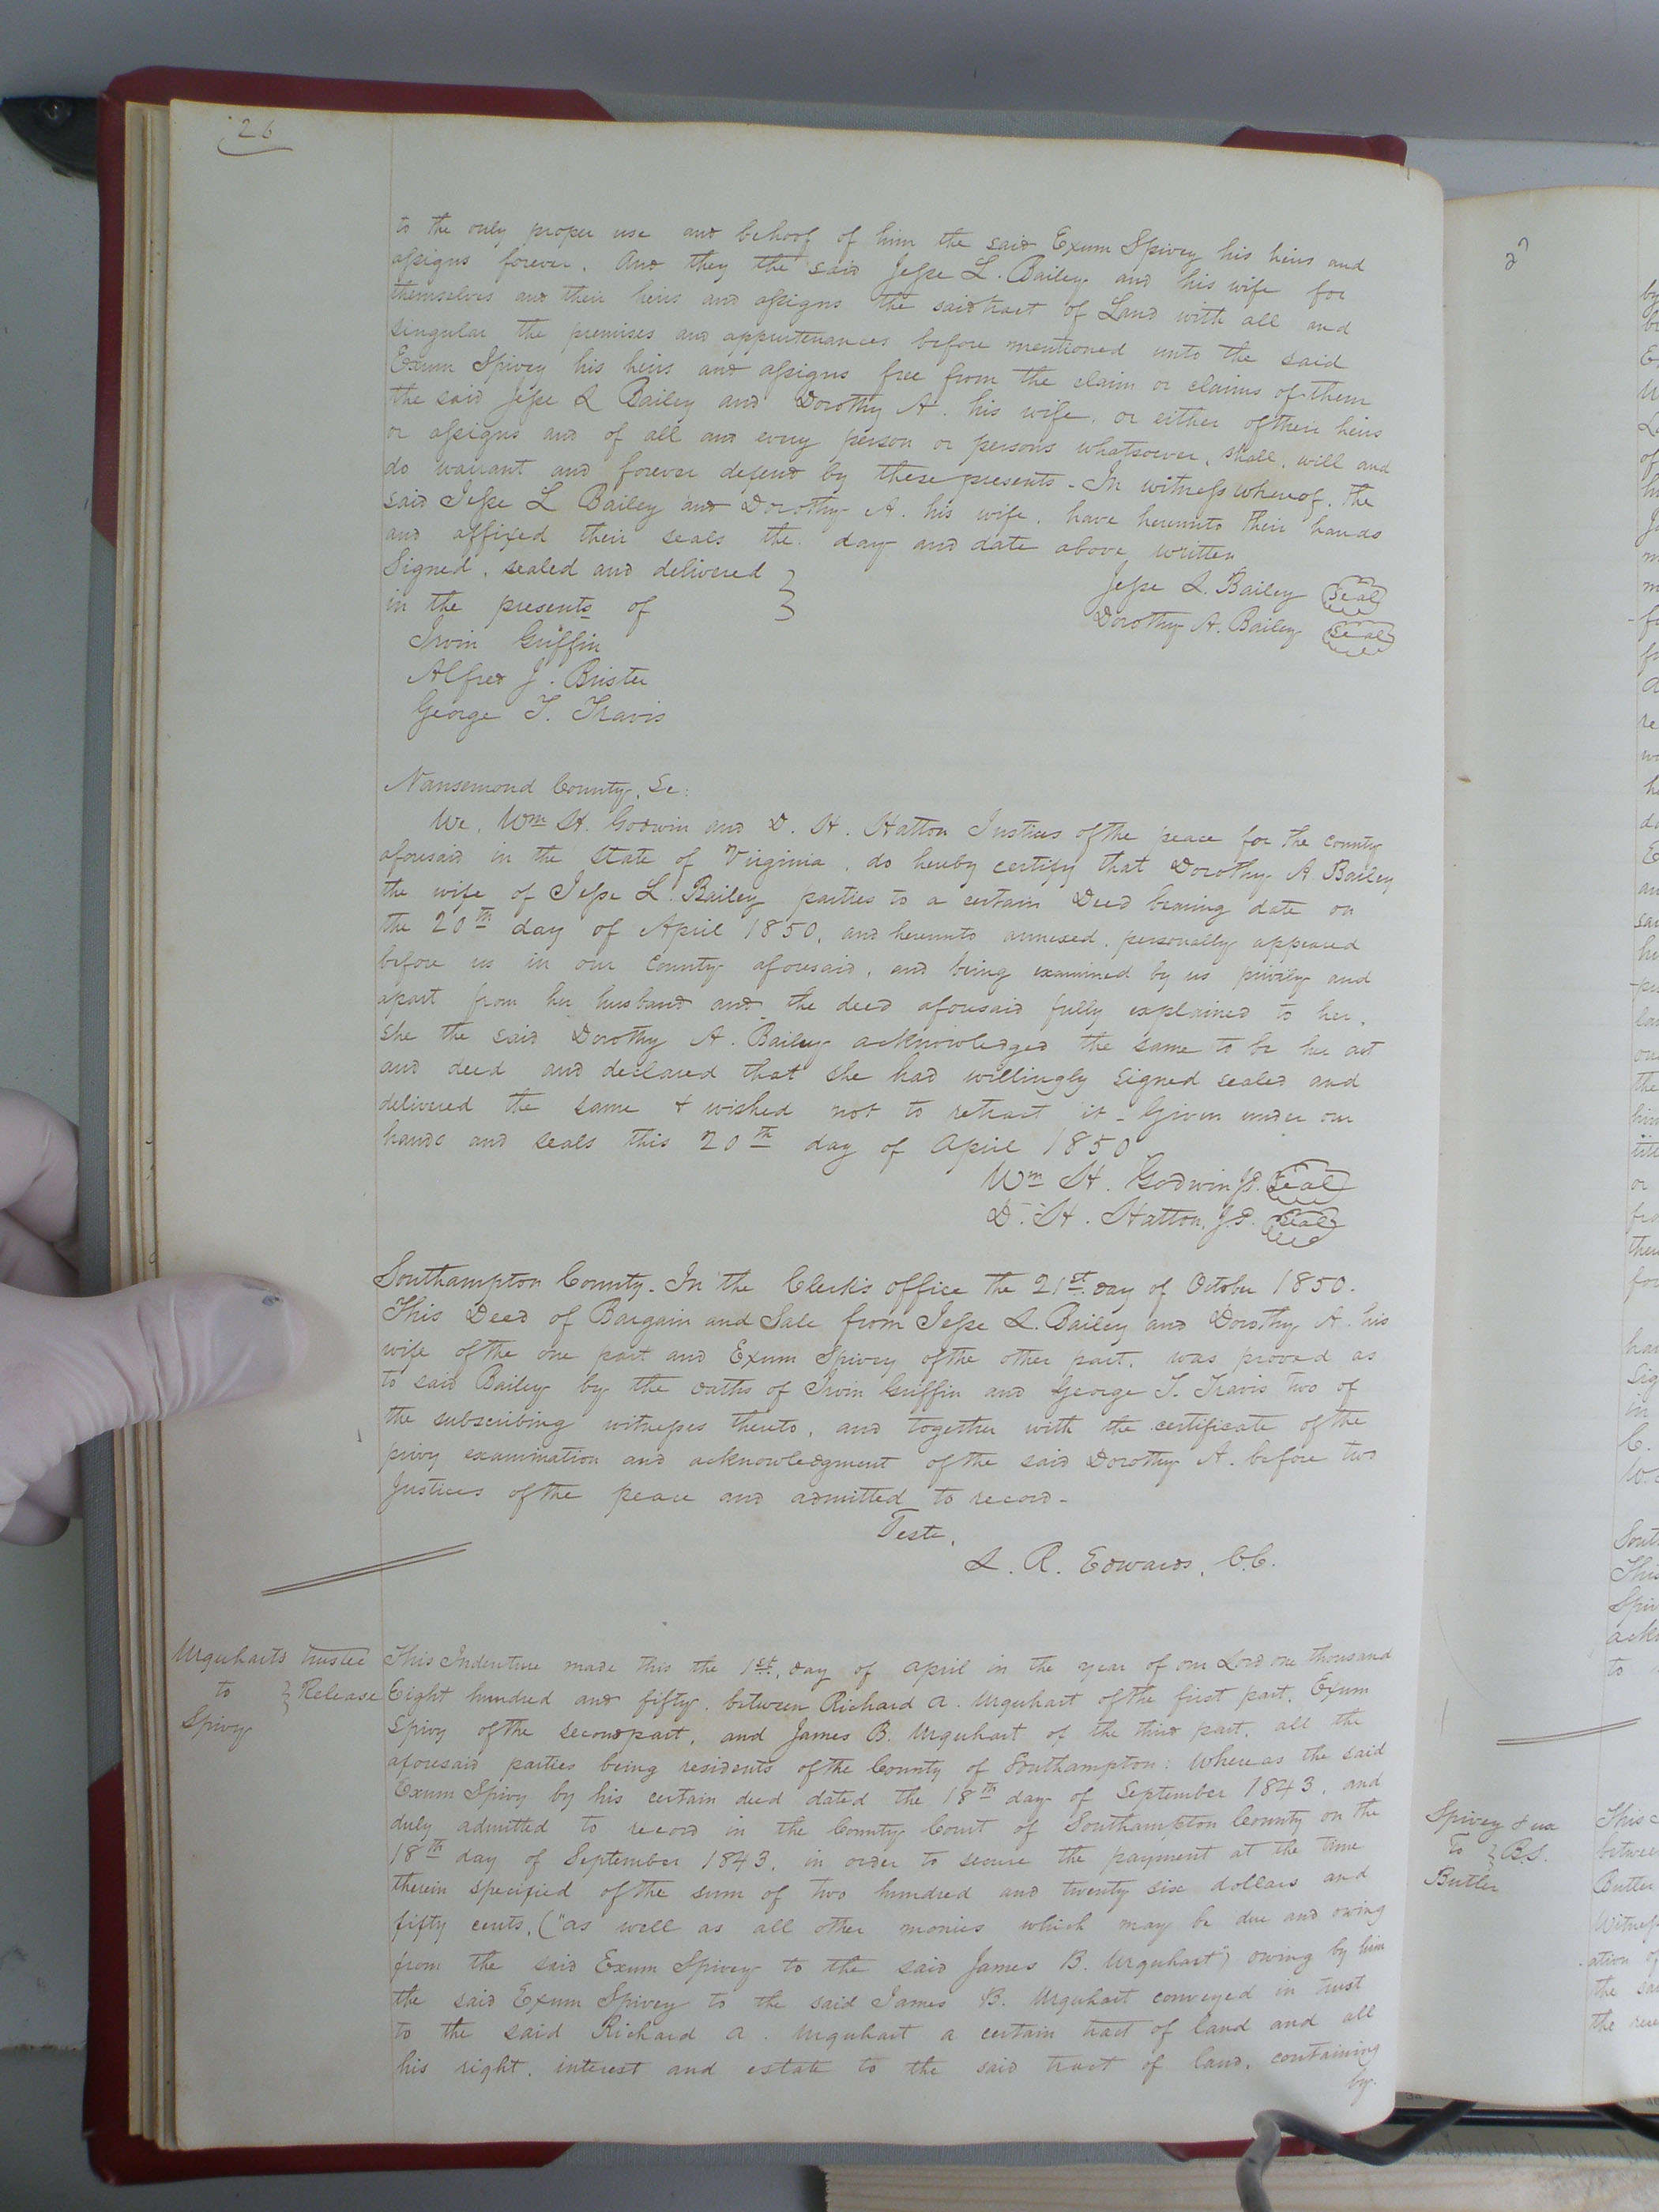 26
to the only proper use and behoof of him the said Exum Spivey his heirs and
assigns forever. And they the said Jesse L. Bailey and his wife for
themselves and their heirs and assigns the said tract of Land with all and
singular the premises and appurtenances before mentioned unto the said
Exum Spivey his heirs and assigns free from the claim or claims of them
the said Jesse L Bailey and Dorothy A. his wife, or either of their heirs
or assigns and of all and every person or persons whatsoever, shall, will and
do warrant and forever defend by these presents - In witness whereof, the
said Jesse L Bailey and Dorothy A. his wife, have hereunto their hands
and affixed their seals the day and date above written
Signed, sealed and delivered }
in the presents of
Jesse L. Bailey Seal
Dorothy A. Bailey Seal
Irvin Griffin
Alfred J. Brister
George T. Travis
Nansemond County, Sc:
We, Wm H. Godwin and D. H. Hatton Justices of the peace for the county
aforesaid in the State of Virginia, do hereby certify that Dorothy A Bailey
the wife of Jesse L. Bailey parties to a certain Deed bearing date on
the 20th day of April 1850, and hereunto annexed, personally appeared
before us in our County aforesaid, and being examined by us privily and
apart from her husband and the deed aforesaid fully explained to her,
she the said Dorothy A. Bailey acknowledged the same to be her act
and deed and declared that she had willingly signed sealed and
delivered the same & wished not to retract it - Given under our
hands and seals this 20th day of April 1850
Wm H. Godwin J.P. Seal
D. H. Hatton, J.P. Seal
Southampton County. In the Clerk's office the 21st day of October 1850.
This Deed of Bargain and Sale from Jesse L. Bailey and Dorothy A. his
wife of the one part and Exum Spivey of the other part, was proved as
to said Bailey by the oaths of Irvin Griffin and George T. Travis two of
the subscribing witnesses thereto, and together with the certificate of the
privy examination and acknowledgment of the said Dorothy A. before two
Justices of the peace and admitted to record -
Teste,
L. R. Edwards, C.C.
Urquharts trustee
to } Release
Spivey
This Indenture made this the 1st. day of April in the year of our Lord one thousand
Eight hundred and fifty, between Richard A. Urquhart of the first part, Exum
Spivy of the second part, and James B. Urquhart of the third part, all the
aforesaid parties being residents of the County of Southampton: Whereas the said
Exum Spivy by his certain deed dated the 18th day of September 1843, and
duly admitted to record in the County Court of Southampton County on the
18th day of September 1843, in order to secure the payment at the time
therein specified of the sum of two hundred and twenty six dollars and
fifty cents, ("as well as all other monies which may be due and owing
from the said Exum Spivey to the said James B. Urquhart") owing by him
the said Exum Spivey to the said James B. Urquhart conveyed in trust
to the said Richard A. Urquhart a certain tract of land and all
his right, interest and estate to the said tract of land, containing
by
27
Spivey & ux
To } B.S.
Butler